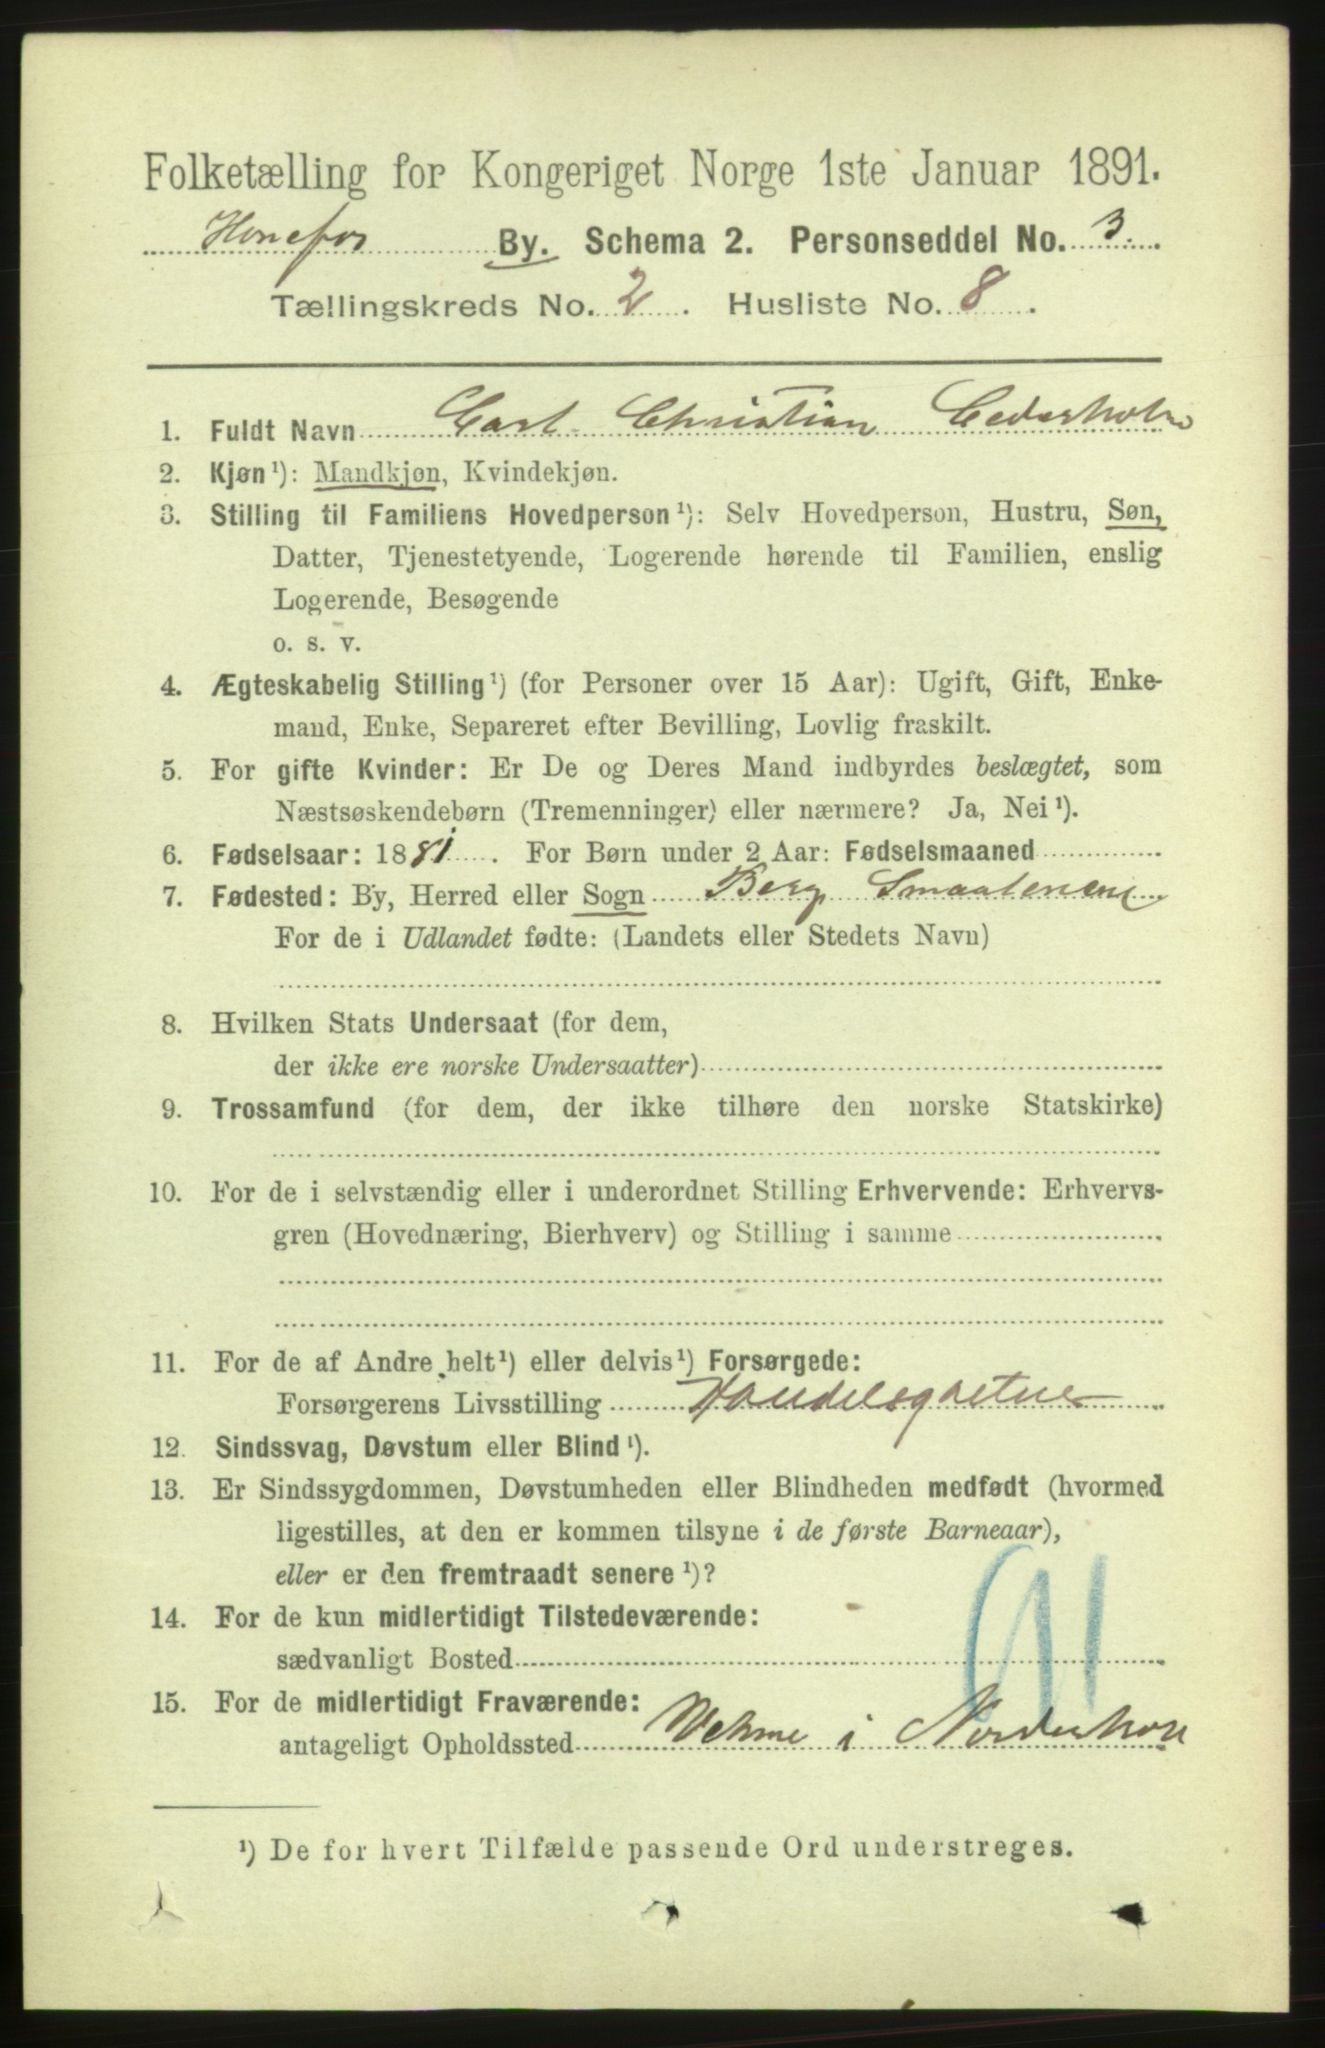 Folketælling for Kongeriget Norge 1ste Januar 1891.
Hønefos By. Schema 2. Personseddel No. 3.
Tællingskreds No. 2. Husliste No. 8.
1. Fuldt Navn Carl Christian Cederholm
2. Kjøn¹): Mandkjøn, Kvindekjøn.
3. Stilling til Familiens Hovedperson¹): Selv Hovedperson, Hustru, Søn,
Datter, Tjenestetyende, Logerende hørende til Familien, enslig
Logerende, Besøgende
o. s. v.
4. Ægteskabelig Stilling¹) (for Personer over 15 Aar): Ugift, Gift, Enke-
mand, Enke, Separeret efter Bevilling, Lovlig fraskilt.
5. For gifte Kvinder: Er De og Deres Mand indbyrdes beslægtet, som
Næstsøskendebørn (Tremenninger) eller nærmere? Ja, Nei¹).
6. Fødselsaar: 1881. For Børn under 2 Aar: Fødselsmaaned
7. Fødested: By, Herred eller Sogn Berg Smaalenene
For de i Udlandet fødte: (Landets eller Stedets Navn)
8. Hvilken Stats Undersaat (for dem,
der ikke ere norske Undersaatter)
9. Trossamfund (for dem, der ikke tilhøre den norske Statskirke)
10. For de i selvstændig eller i underordnet Stilling Erhvervende: Erhvervs-
gren (Hovednæring, Bierhverv) og Stilling i samme
11. For de af Andre helt¹) eller delvis¹) Forsørgede:
Forsørgerens Livsstilling
12. Sindssvag, Døvstum eller Blind¹).
13. Er Sindssygdommen, Døvstumheden eller Blindheden medfødt (hvormed
ligestilles, at den er kommen tilsyne i de første Barneaar),
eller er den fremtraadt senere¹)?
14. For de kun midlertidigt Tilstedeværende:
sædvanligt Bosted
15. For de midlertidigt Fraværende:
antageligt Opholdssted Vehme i Norderhov
¹) De for hvert Tilfælde passende Ord understreges.